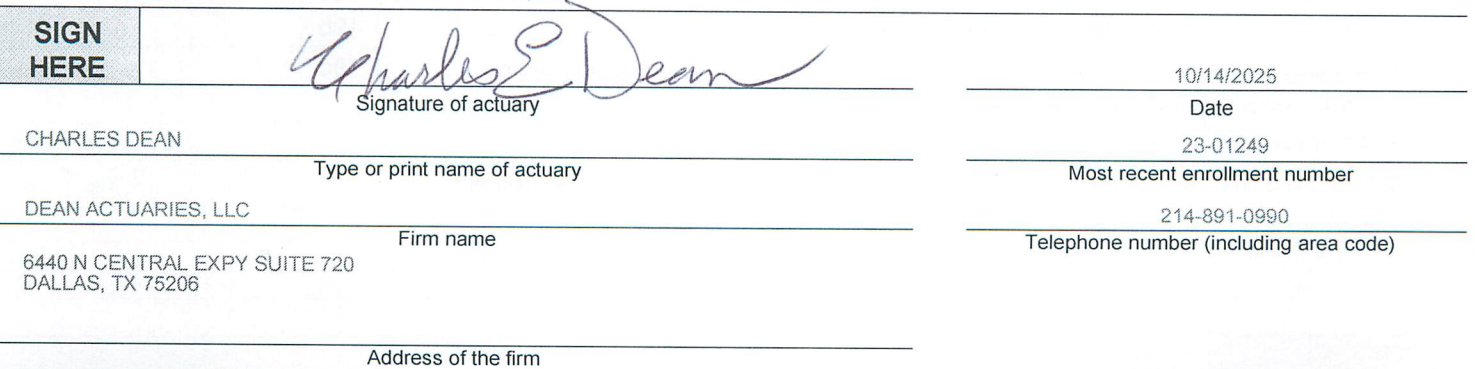 SIGN
HERE
Charles E Dean
10/14/2025
Signature of actuary
Date
CHARLES DEAN
23-01249
Type or print name of actuary
Most recent enrollment number
DEAN ACTUARIES, LLC
214-891-0990
Firm name
Telephone number (including area code)
6440 N CENTRAL EXPY SUITE 720
DALLAS, TX 75206
Address of the firm